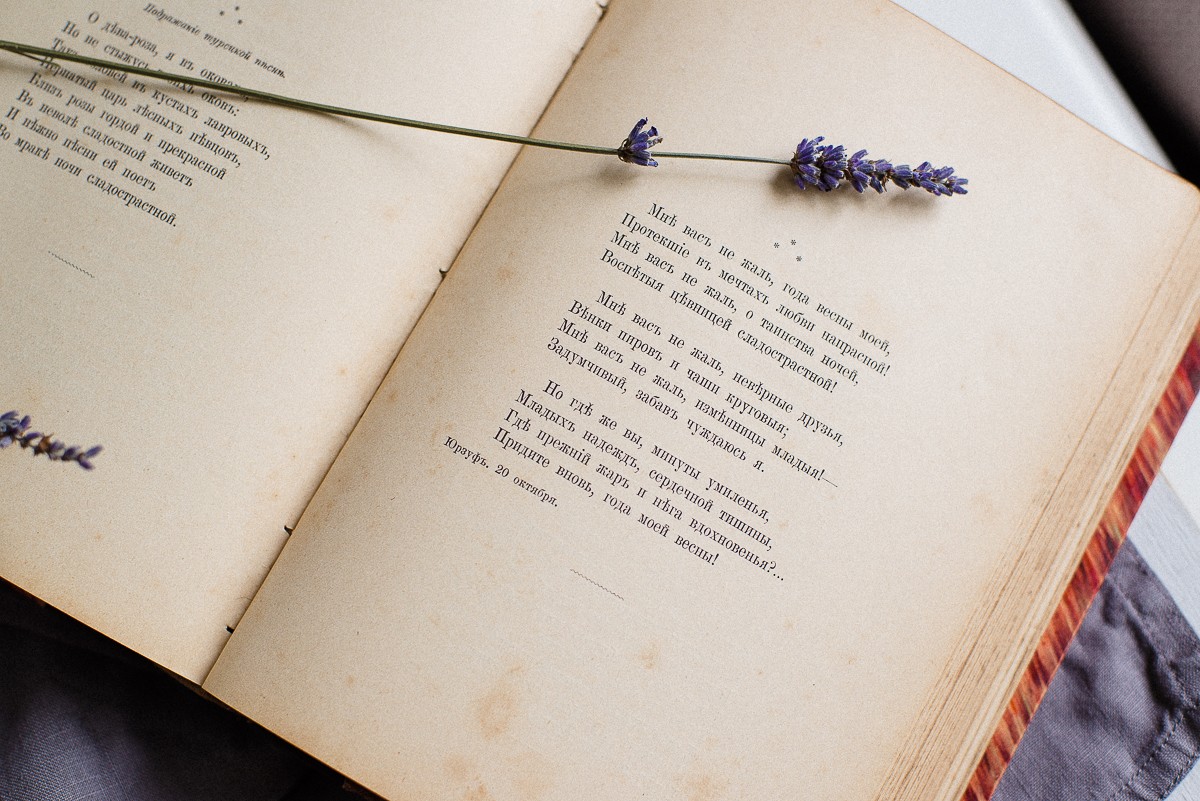 Подражаніе турецкой пѣсни.
О дѣва-роза, я въ оковахъ;
Но не стыжусь твоихъ оковъ:
Такъ соловей въ кустахъ лавровыхъ,
Пернатый царь лѣсныхъ пѣвцовъ,
Близь розы гордой и прекрасной
Въ неволѣ сладостной живетъ
И нѣжно пѣсни ей поетъ
Во мракѣ ночи сладострастной.
* * *
Мнѣ васъ не жаль, года весны моей,
Протекшіе въ мечтахъ любви напрасной!
Мнѣ васъ не жаль, о таинства ночей,
Воспѣтыя цѣвницей сладострастной!
Мнѣ васъ не жаль, невѣрные друзья,
Вѣнки пировъ и чаши круговыя;
Мнѣ васъ не жаль, измѣнницы младыя!—
Задумчивый, забавъ чуждаюсь я.
Но гдѣ же вы, минуты умиленья,
Младыхъ надеждъ, сердечной тишины,
Гдѣ прежній жаръ и нѣга вдохновенья?...
Придите вновь, года моей весны!
Юрзуфъ. 20 октября.